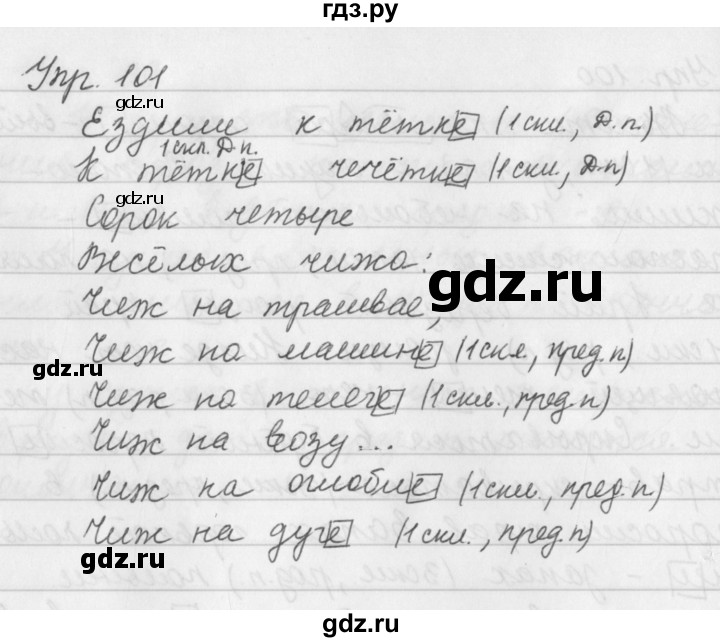 гдз.ру
Упр. 101
gdz.ru
Ездили к тётке (1 скл., Д.п.)
1 скл. Д.п.
К тётке чечётке (1 скл., Д.п)
gdz.ru
Сорок четыре
Весёлых чижа:
gdz.ru
Чиж на трамвае,
Чиж на машине (1 скл., пред.п)
gdz.ru
Чиж на телеге (1 скл., пред.п)
Чиж на возу...
Чиж на оглобле (1 скл., пред.п)
gdz.ru
Чиж на дуге (1 скл., пред.п)
gdz.ru